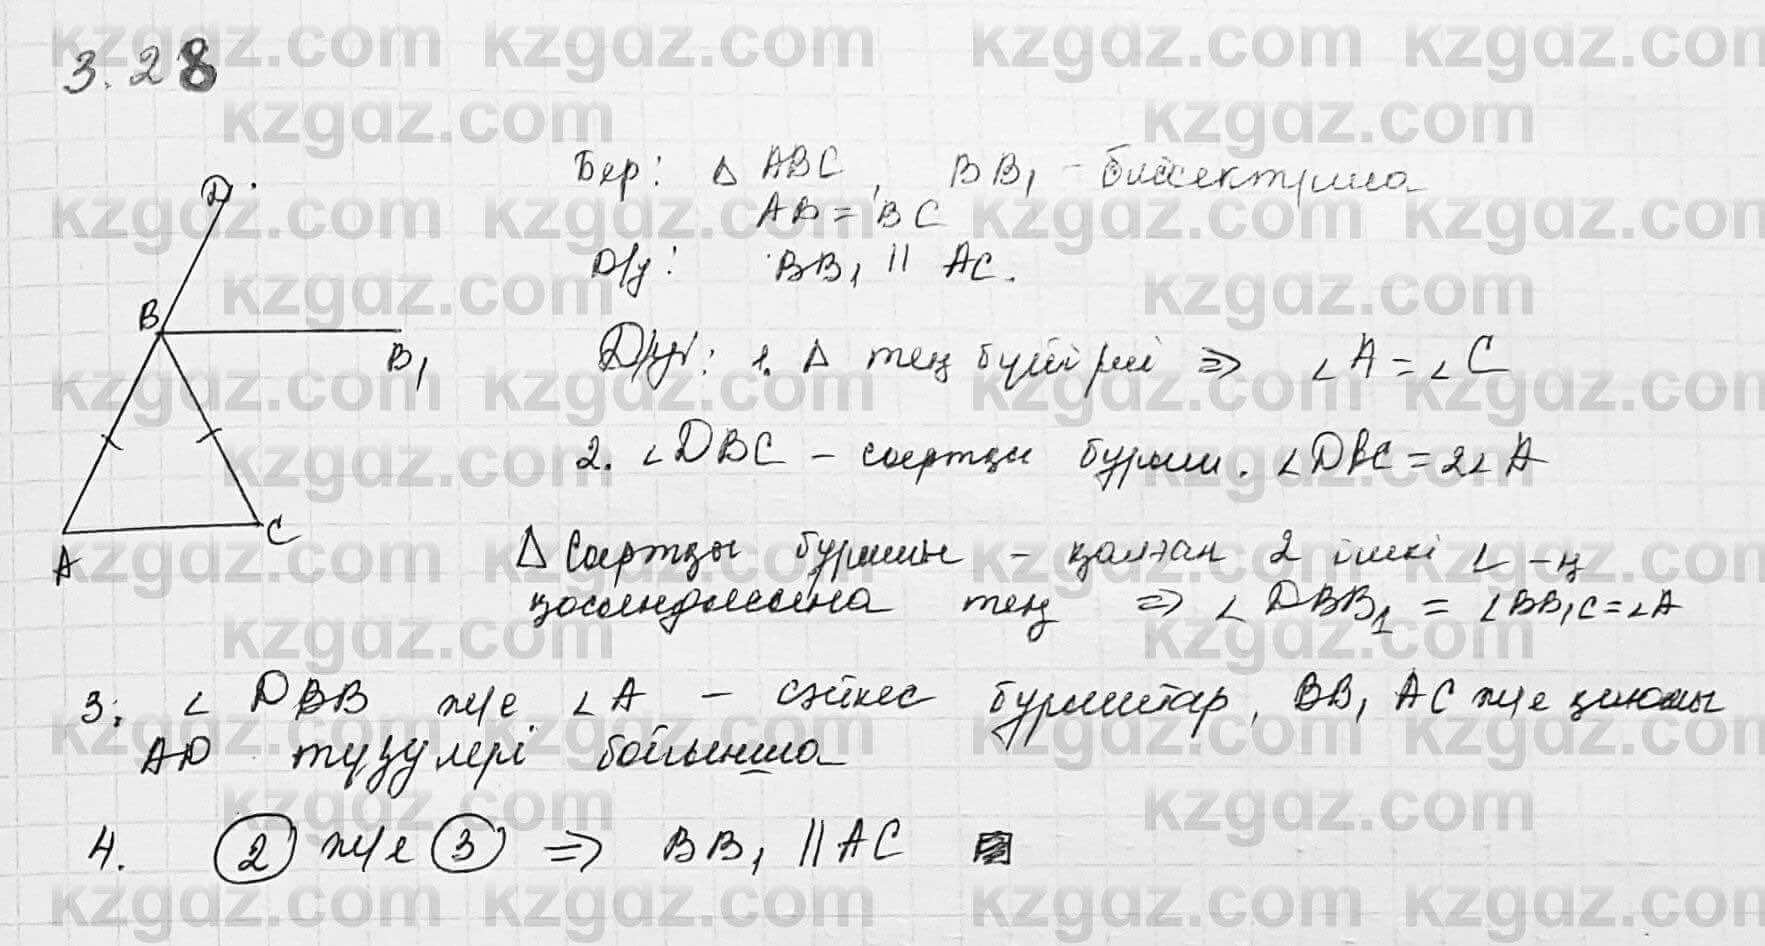 3.28
Бер: Δ ABC, BB₁ - биссектриса
AB = BC
D/у: BB₁ || AC.
D/уі: 1. Δ тең бүйірлі => ∠A = ∠C
2. ∠DBC - сыртқы бұрыш. ∠DBC = 2∠A
Δ Сыртқы бұрышы - қалған 2 ішкі ∠-ң
қосындысына тең => ∠DBB₁ = ∠BB₁C = ∠A
3. ∠DBB ж/е ∠A - сәйкес бұрыштар, BB₁ AC ж/е қиюшы
AD түзулері бойынша
4. 2 ж/е 3 => BB₁ || AC
D
B
B₁
A
C
kzgaz.com